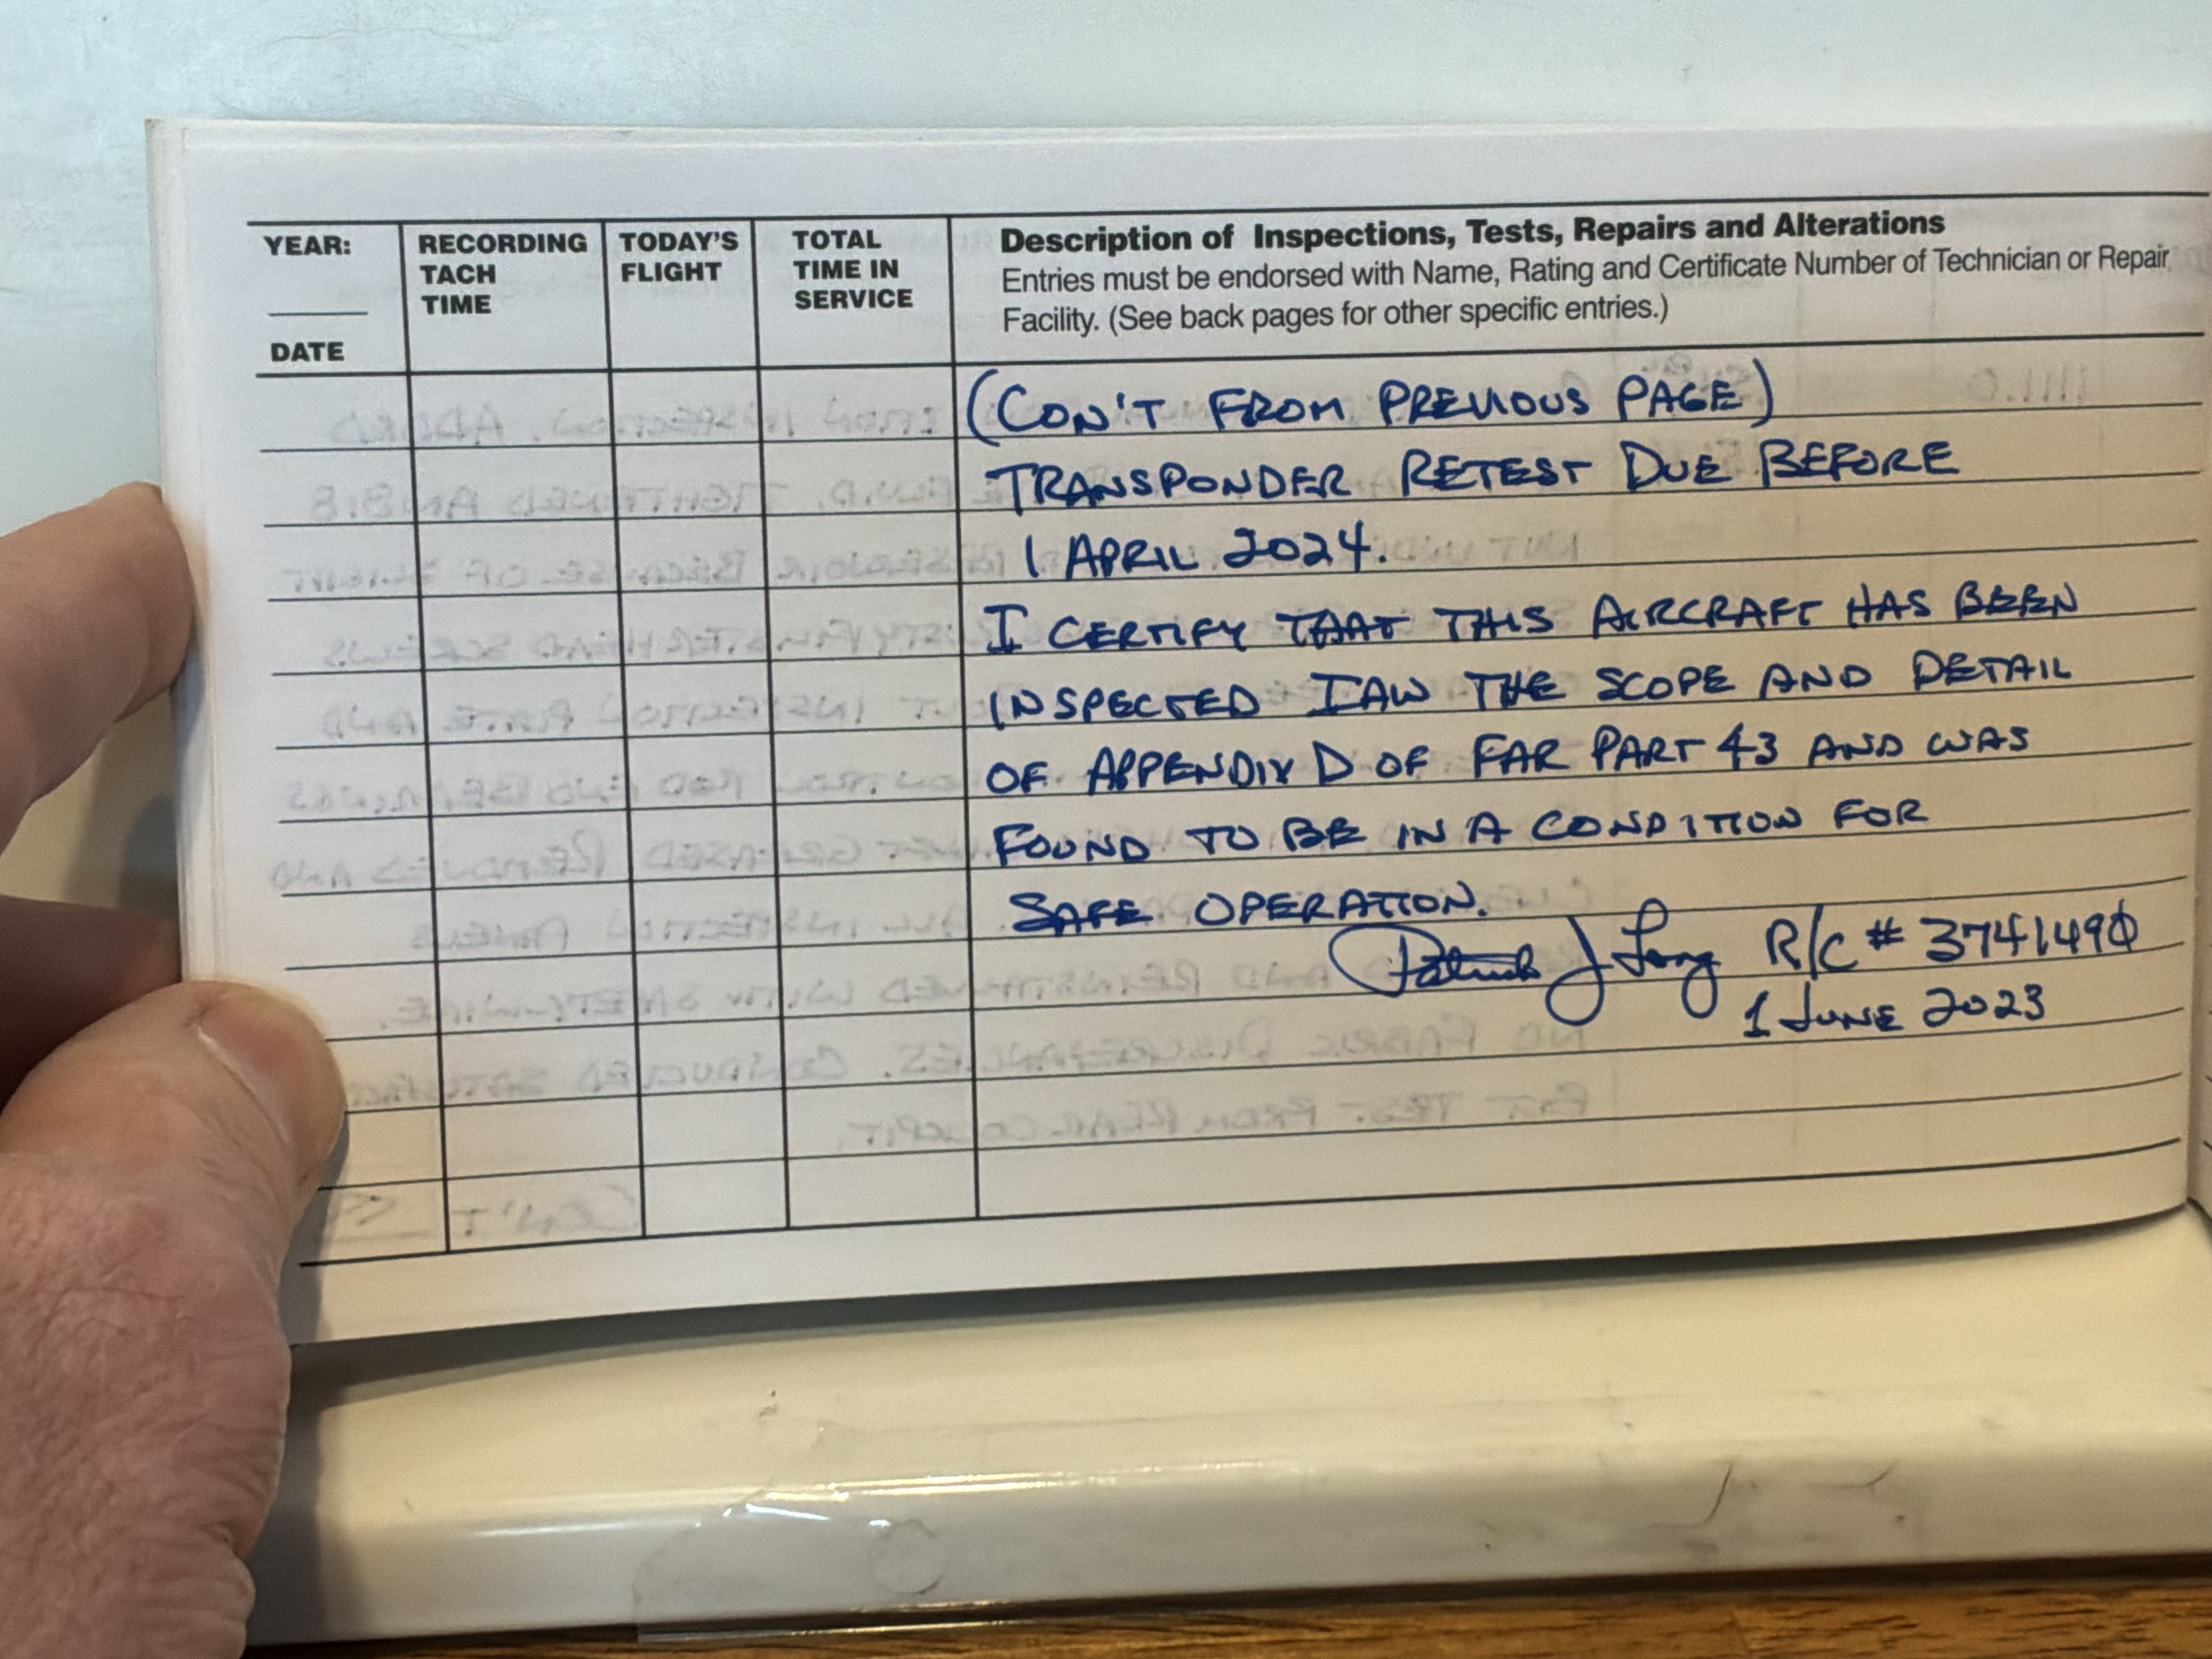 YEAR:
DATE
RECORDING
TACH
TIME
TODAY'S
FLIGHT
TOTAL
TIME IN
SERVICE
Description of Inspections, Tests, Repairs and Alterations
Entries must be endorsed with Name, Rating and Certificate Number of Technician or Repair
Facility. (See back pages for other specific entries.)
(CON'T FROM PREVIOUS PAGE)
TRANSPONDER RETEST DUE BEFORE
1 APRIL 2024.
I CERTIFY THAT THIS AIRCRAFT HAS BEEN
INSPECTED IAW THE SCOPE AND DETAIL
OF APPENDIX D OF FAR PART 43 AND WAS
FOUND TO BE IN A CONDITION FOR
SAFE OPERATION.
Patrick J Long R/C # 3741490
1 JUNE 2023